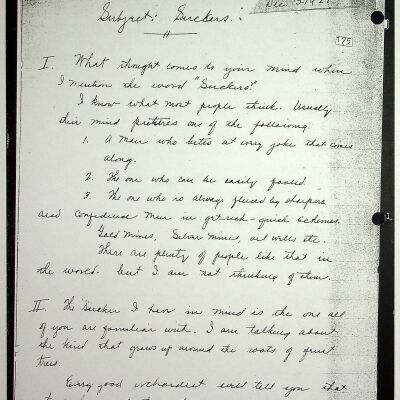 Subject: Suckers.:
Dec 13-1927
175
I. What thought comes to your mind when
I mention the word "Suckers?"
I know what most people think. Usually
their mind pictures one of the following
1. A man who bites at every joke that comes
along.
2. The one who can be easily fooled.
3. The one who is always fleeced by sharpers
and confidence men in get-rich-quick schemes.
Gold mines, Silver mines, oil wells etc.
There are plenty of people like that in
the world. but I am not thinking of them.
II. The sucker I have in mind is the one all
of you are familiar with. I am talking about
the kind that grows up around the roots of fruit
trees.
Every good orchardist will tell you that